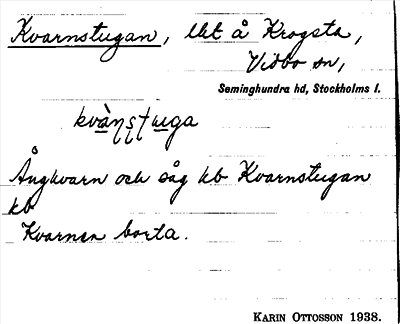 Kvarnstugan, lht å Krogsta,
Vidbo sn,
Seminghundra hd, Stockholms l.
Ångkvarn och såg kb Kvarnstugan
kb
Kvarnen borta.
KARIN OTTOSSON 1938.